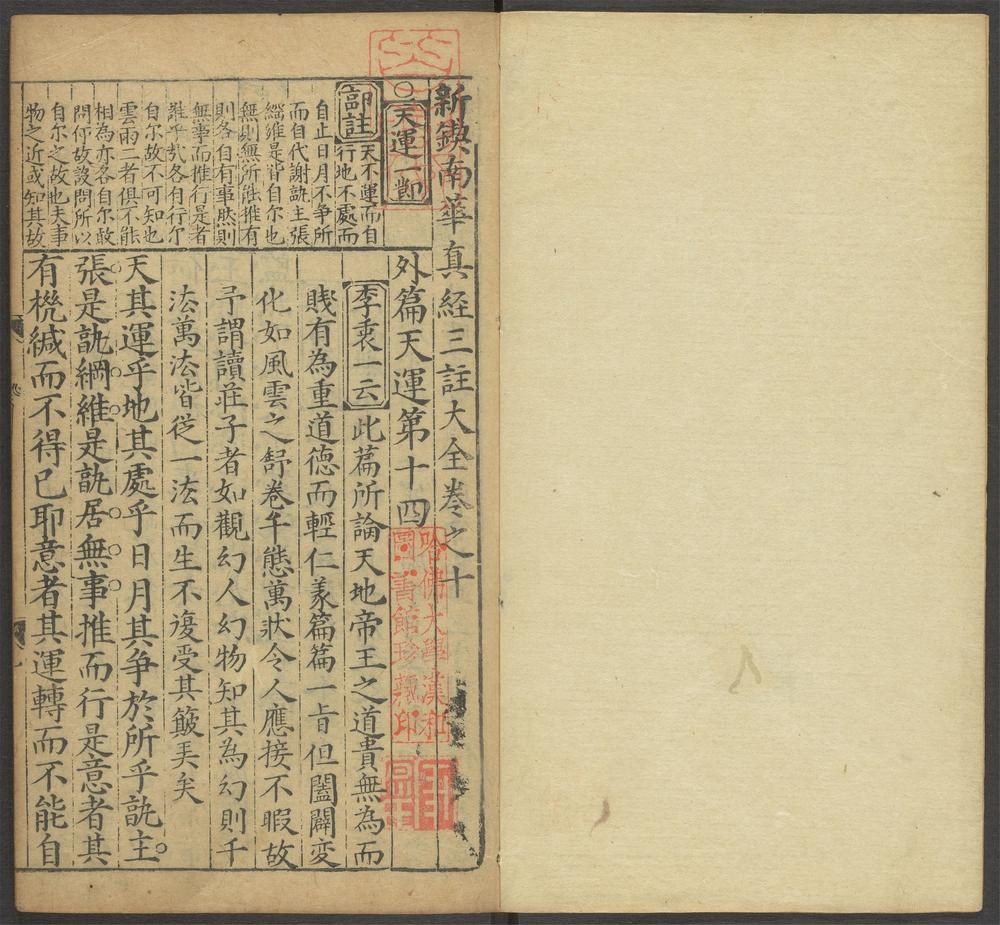 新鍥南華真経三註大全卷之十
外篇天運第十四
李衷一云此篇所論天地帝王之道貴無為而
賎有為重道德而輕仁義篇篇一㫖但闔闢变
化如風雲之舒卷千態萬狀令人應接不暇故
予謂讀莊子者如觀幻人幻物知其為幻則千
法萬法皆従一法而生不復受其簸弄矣
天其運乎地其處乎日月其争於所乎孰主
張是孰綱維是孰居無事推而行是意者其
有機緘而不得已耶意者其運轉而不能自
○天運一節
郭註天不運而自
行地不處而
自止日月不争所
而自代謝孰主張
綱維是皆自尔也
無則無所能推有
則各自有事然則
無事而推行是者
誰乎哉各自行尔
自尔故不可知也
雲雨二者俱不能
相為亦各自尔敢
問何故設問所以
自尔之故也夫事
物之近或知其故
哈佛大學漢和
圖書館珍藏印